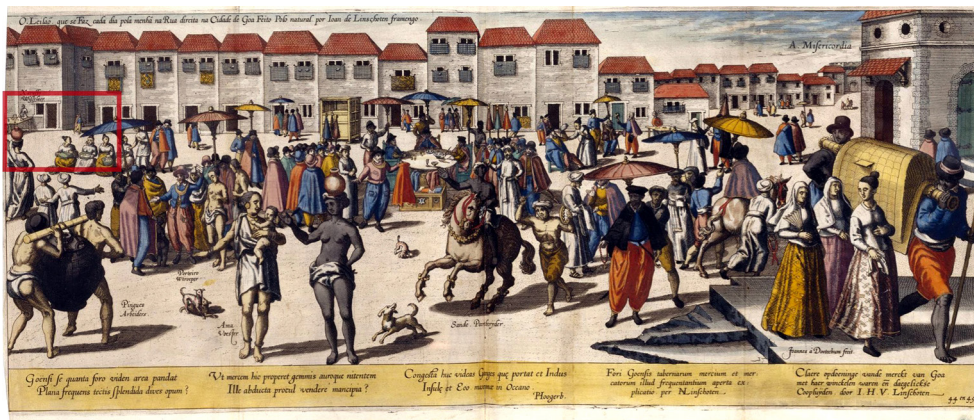 O Leilaõ que se faz cada dia pola menhã na Rua direita na Cidade de Goa Feito Polo natural por Ioan de Linschoten framengo
A Misericordia
Pingues
Ama
Sande Partryder
Joannes a Doetechum fecit
Goënsi se quanta foro viden area pandat
Plana frequens tectis splendida dives opum?
Ut mercem hic properet gemmis auroque nitentem
Ille abducta procul vendere mancipia?
Congesta huc videas Ganges que portat et Indus
Insulæ et Eoo nomine in Oceano.
Hoegerb.
Fori Goensis tabernarum mercium et mer-
catorum illud frequentantium aperta ex
plicatio per Linschoten
Claere opdeeninge vande merckt van Goa
met haer winckelen waren en daegelickse
Coopluyden door I. H. V. Linschoten
44 en 45